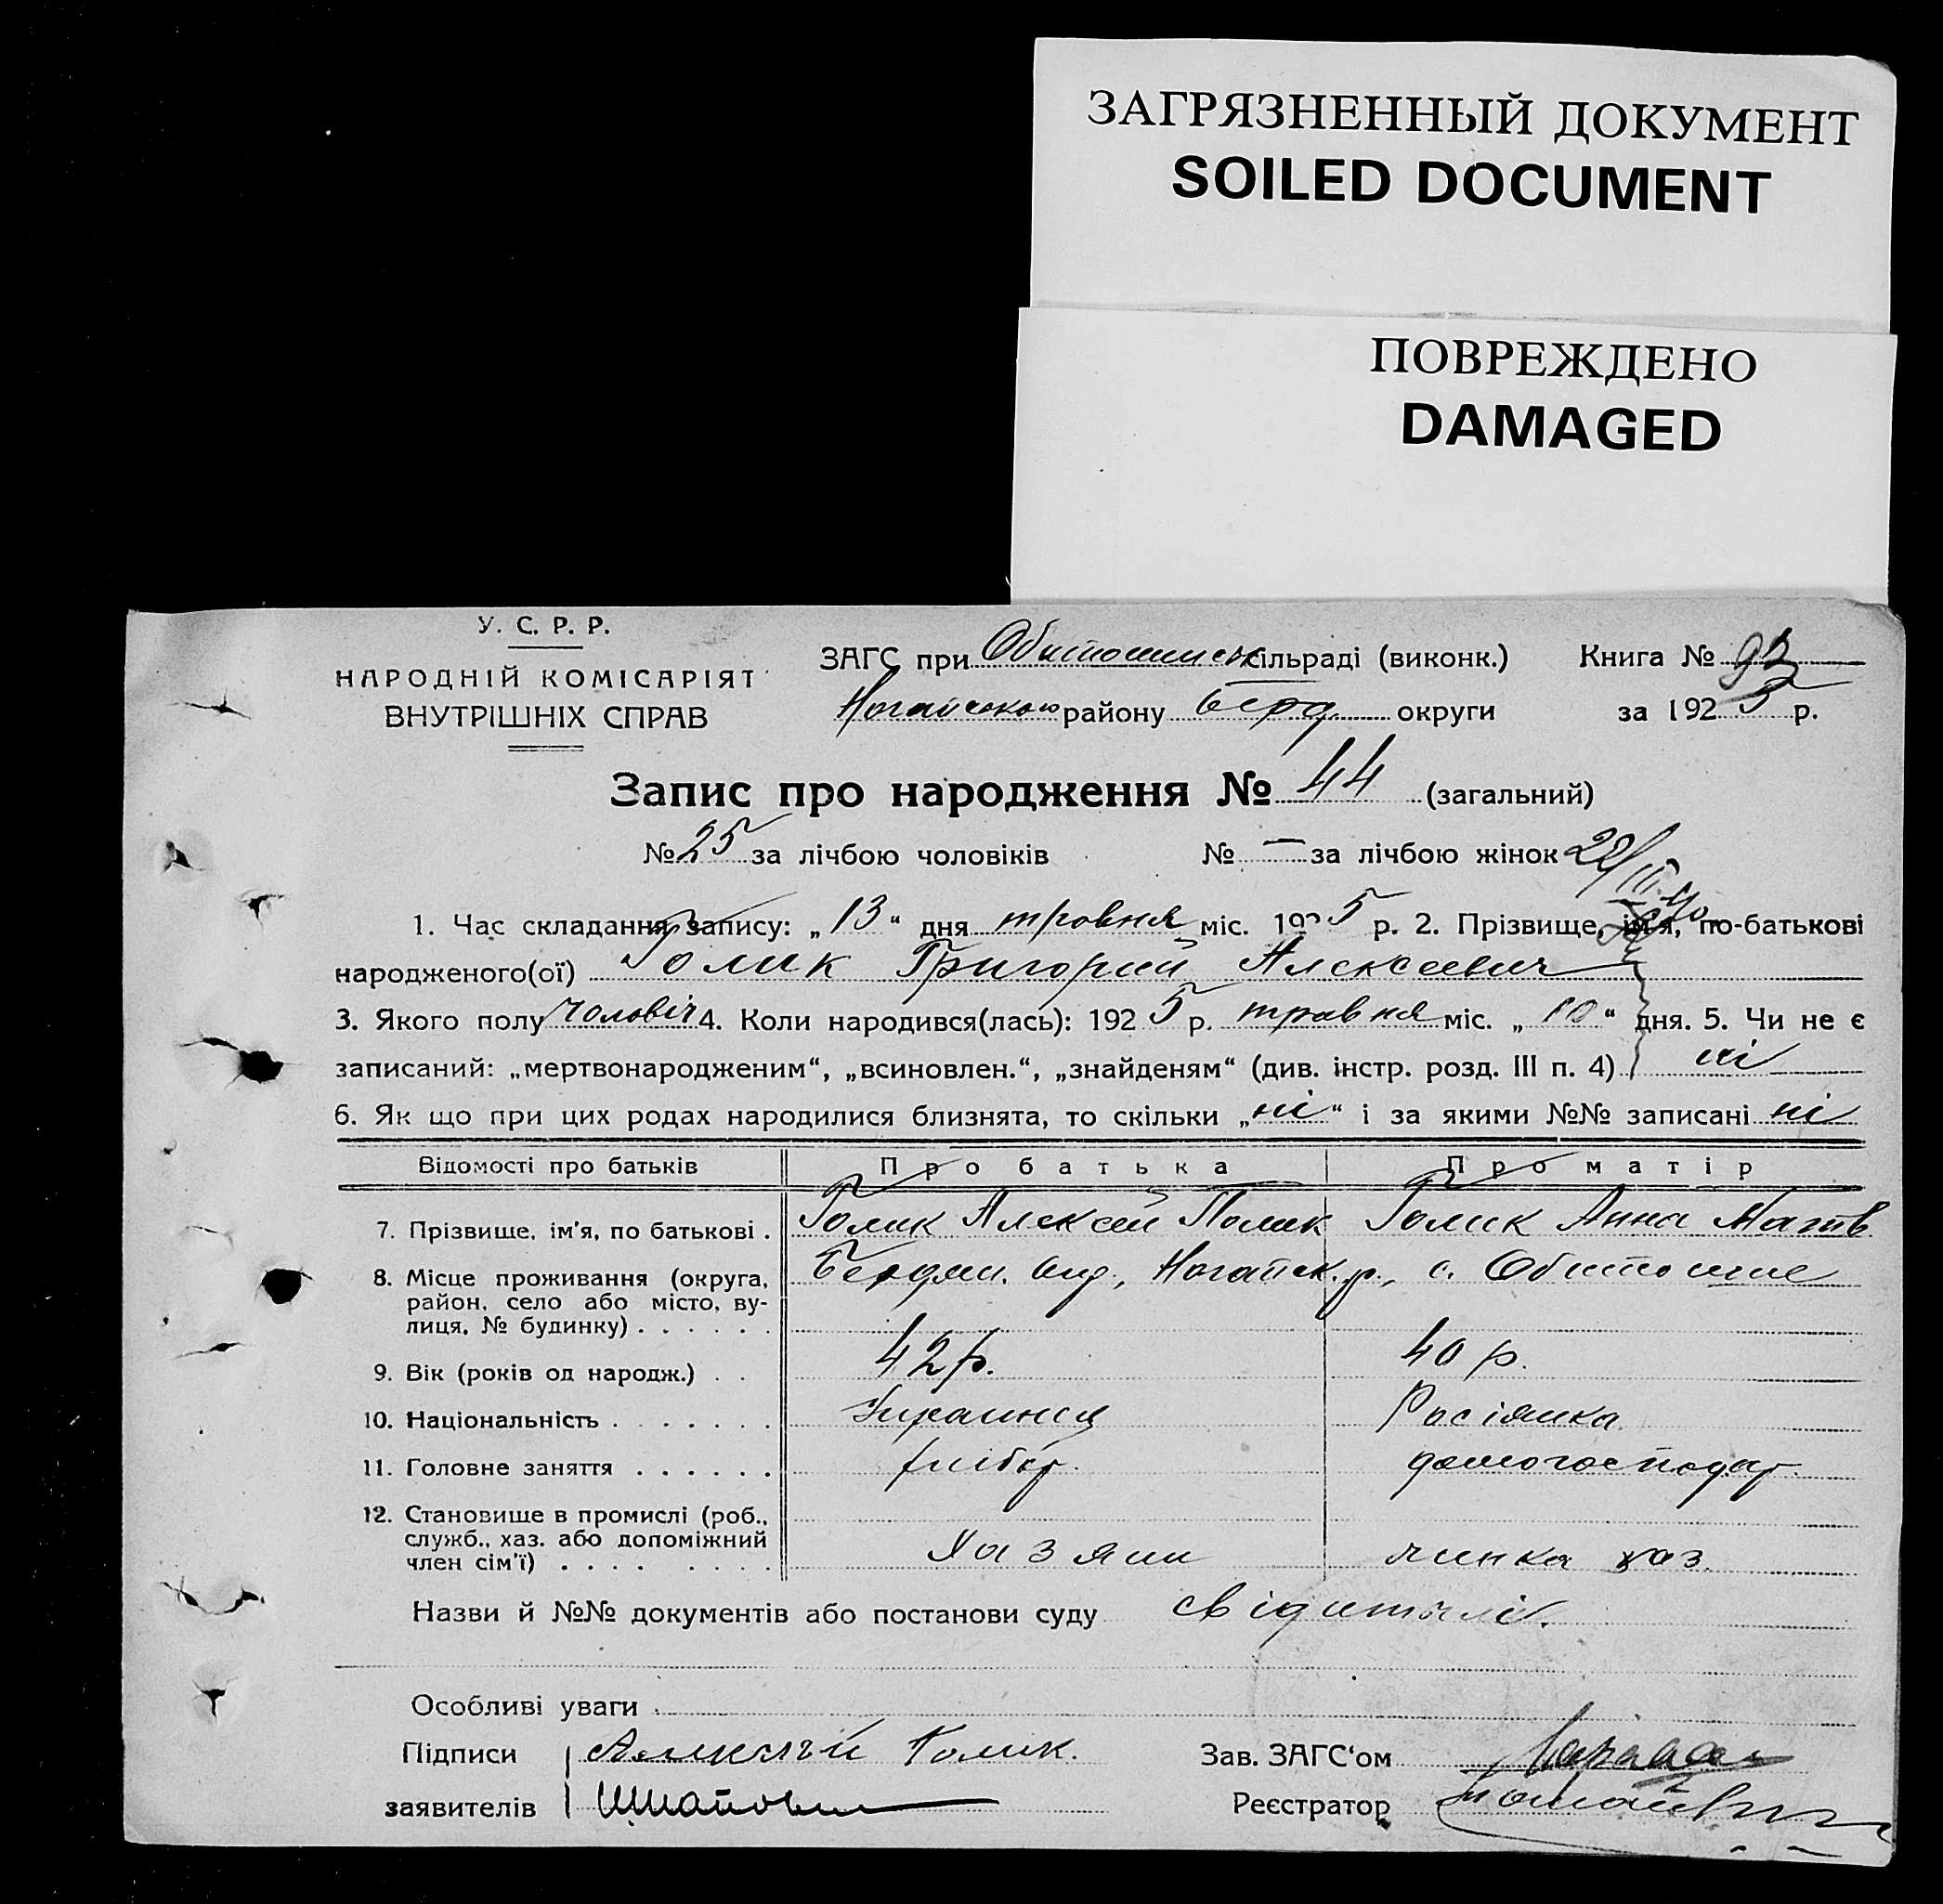 ЗАГРЯЗНЕННЫЙ ДОКУМЕНТ
SOILED DOCUMENT
ПОВРЕЖДЕНО
DAMAGED
У. С. Р. Р.
НАРОДНІЙ КОМІСАРІЯТ
ВНУТРІШНІХ СПРАВ
ЗАГС при Обиточинськ сільраді (виконк.) Книга № 93
Ногайського району Берд. округи за 1925 р.
Запис про народження № 44 (загальний)
№ 25 за лічбою чоловіків № — за лічбою жінок
1. Час складання запису: „13“ дня травня міс. 1925 р. 2. Прізвище, ім'я, по-батькові
народженого(ої) Голик Григорий Алексеевич
3. Якого полу чоловіч 4. Коли народився(лась): 1925 р. травня міс. „10“ дня. 5. Чи не є
записаний: „мертвонародженим“, „всиновлен.“, „знайденям“ (див. інстр. розд. III п. 4) ні
6. Як що при цих родах народилися близнята, то скільки „ні“ і за якими №№ записані ні
Відомості про батьків Про батька Про матір
7. Прізвище, ім'я, по батькові . Голик Алексей Голик Анна Матв
8. Місце проживання (округа, Бердян. окр., Ногайск. р., с. Обиточне
район, село або місто, ву-
лиця, № будинку) . . . . . .
9. Вік (років од народж.) . . 42 р. 40 р.
10. Національність . . . . . . . Украинец Росіянка
11. Головне заняття . . . . . . рибор. домогосподар.
12. Становище в промислі (роб.,
служб., хаз. або допоміжний
член сім'ї) . . . . . . . . Хазяин хаз.
Назви й №№ документів або постанови суду свідителі.
Особливі уваги
Підписи Алексѣй Голик. Зав. ЗАГС'ом
заявителів Реєстратор